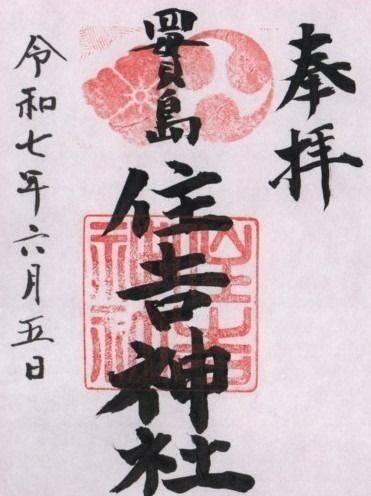 奉拝
四貫島
住吉神社
令和七年六月五日
住吉
神社